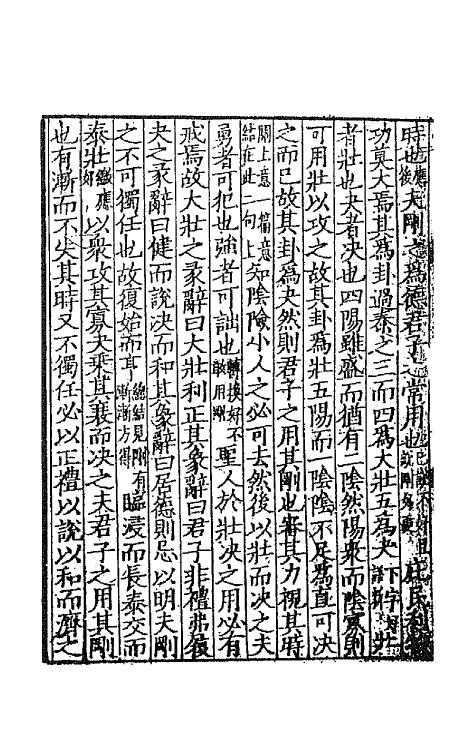 時也應後夫剛之為德君子之常用也庶民利
功莫大焉其為卦過泰之三而四為大壯五為夬下字壯
者壯也夬者決也四陽雖盛而猶有二陰然陽衆而陰寡則
可用壯以攻之故其卦為壯五陽而一陰陰不足為直可決
之而已故其卦為夬然則君子之用其剛也審其力視其時
關上意一篇意結在此一句上知陰險小人之必可去然後以壯而決之夫
勇者可犯也強者可詘也轉換好不敢用剛聖人於壯決之用必有
戒焉故大壯之彖辭曰大壯利正其象辭曰君子非禮弗履
夬之彖辭曰健而說決而和其象辭曰居德則忌以明夫剛
之不可獨任也故復始而亨總結見剛有漸漸方得臨浸而長泰交而
泰壯繳應好以衆攻其寡夬乗其衰而決之夫君子之用其剛
也有漸而不失其時又不獨任必以正禮以說以和而濟之